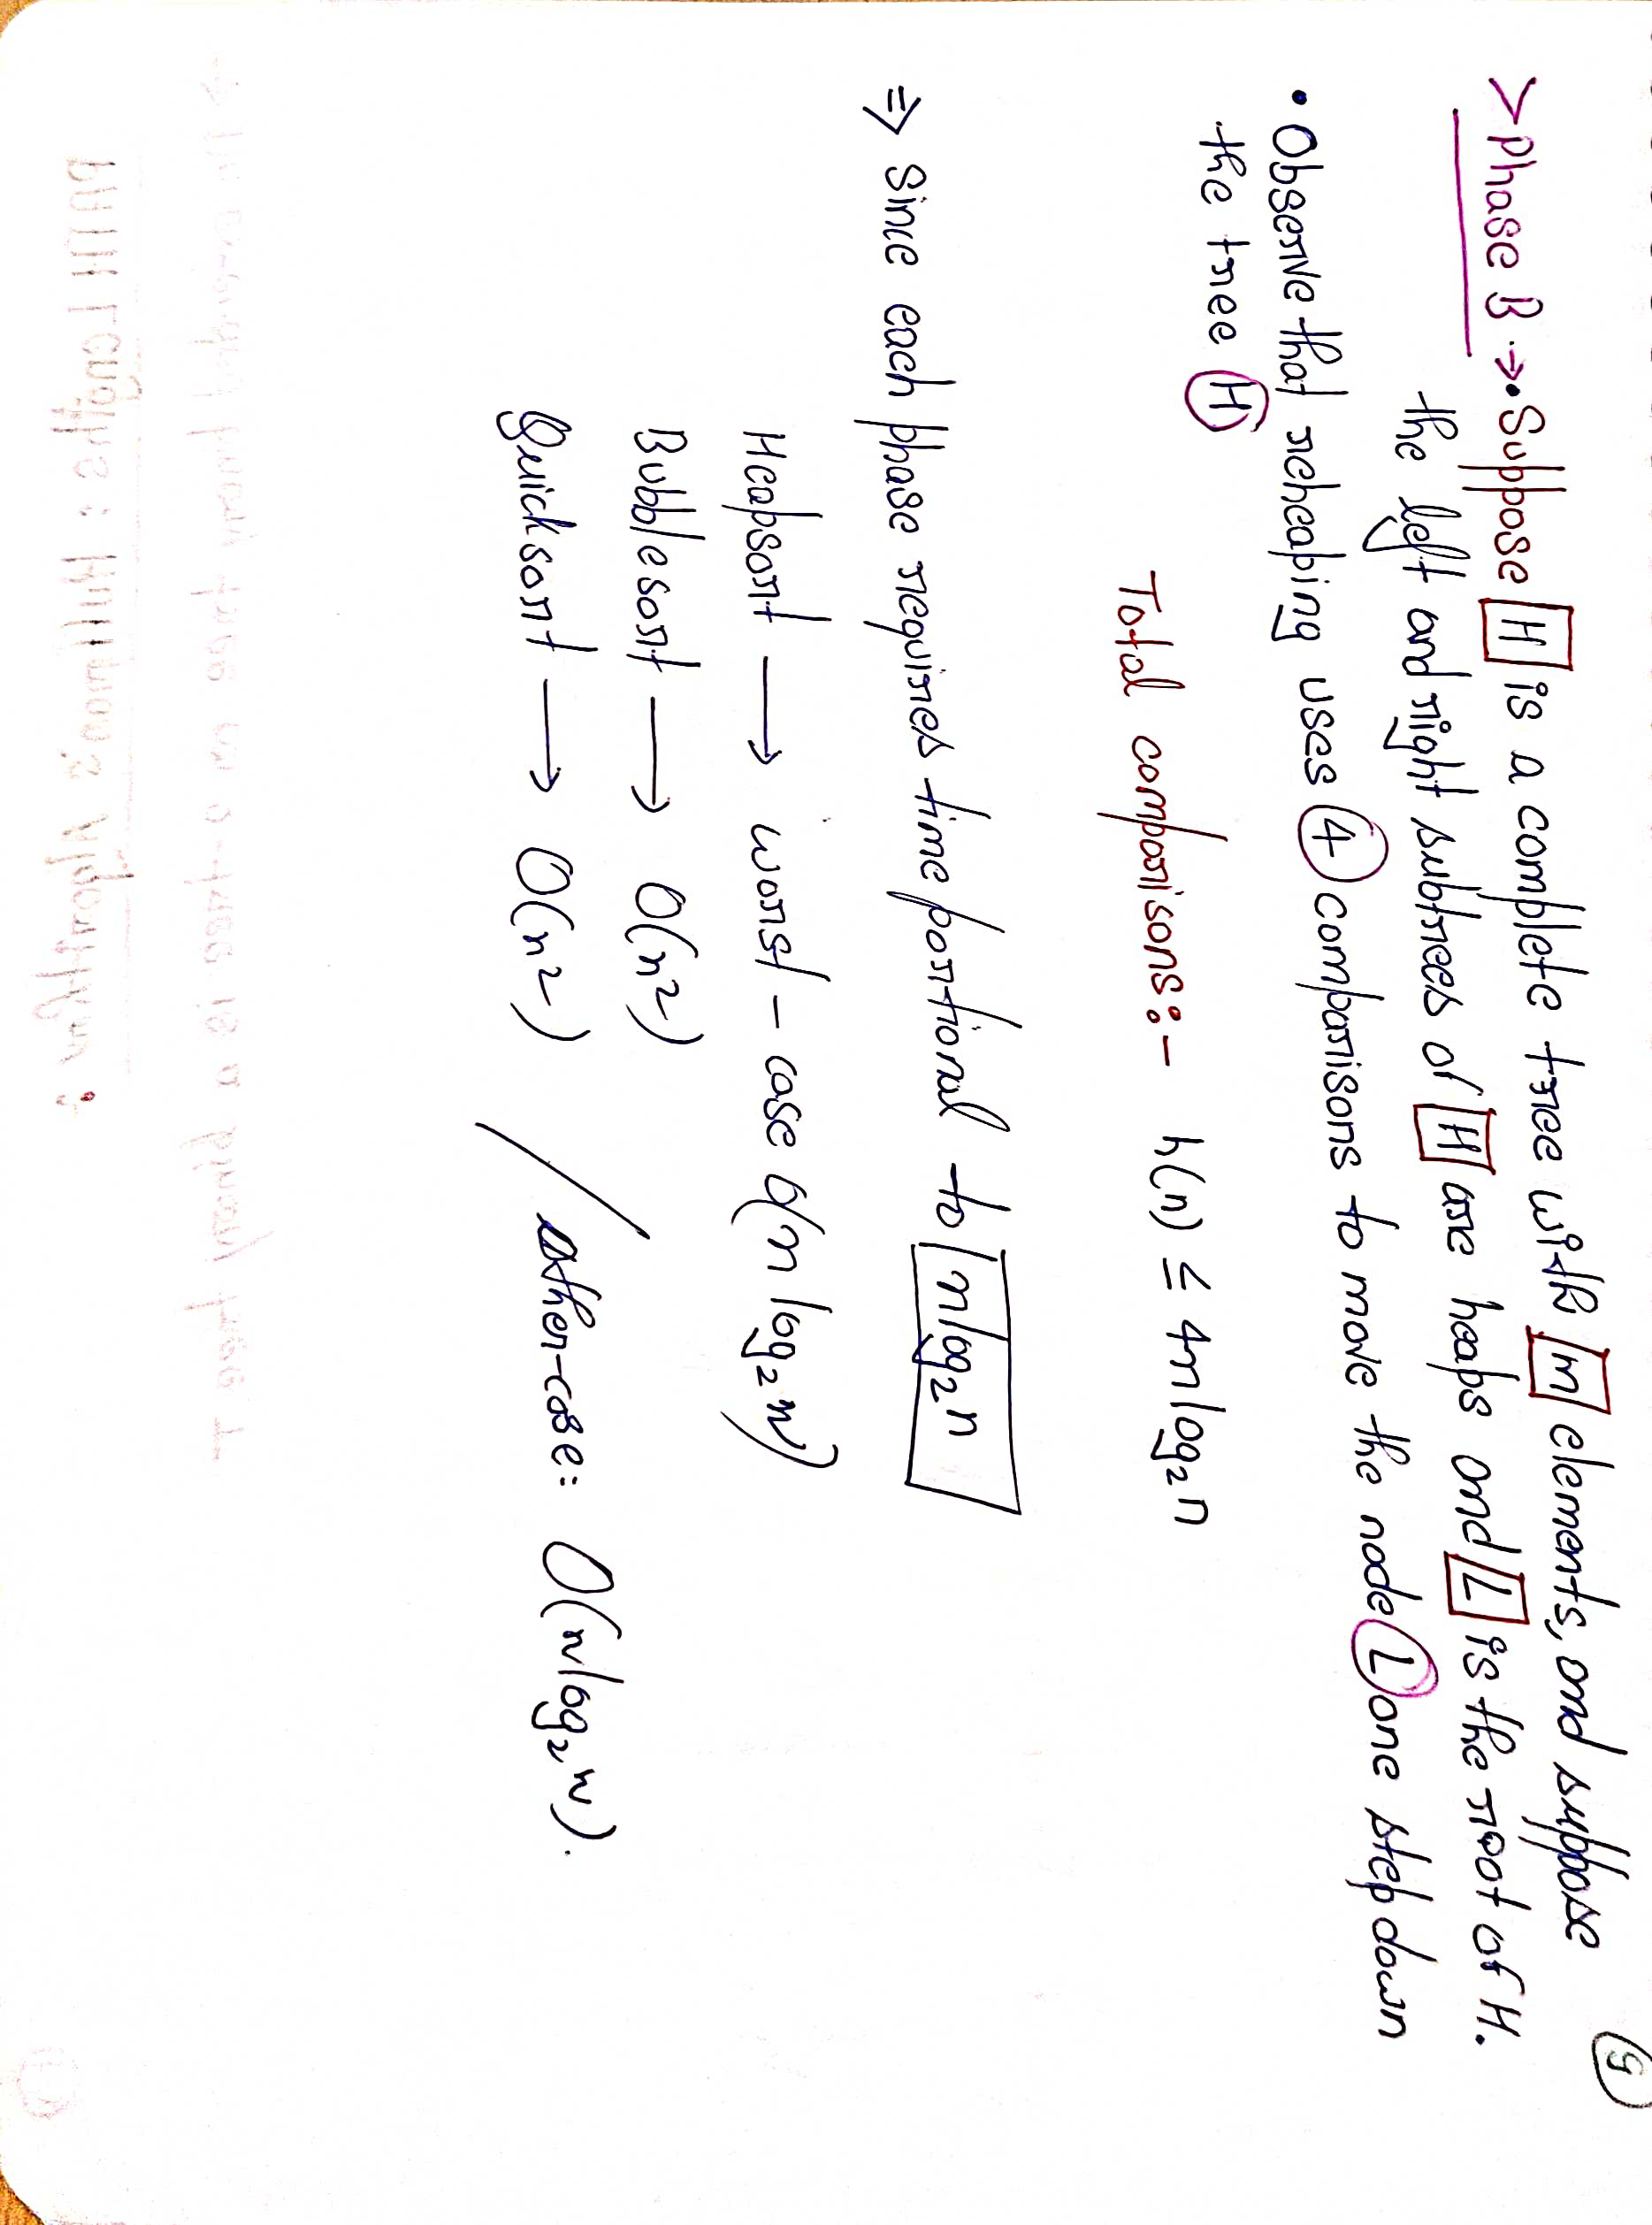 9
> Phase B → • Suppose H is a complete tree with n elements, and suppose
the left and right subtrees of H are heaps and L is the root of H.
• Observe that reheaping uses 4 comparisons to move the node L one step down
the tree H
Total comparisons:- h(n) ≤ 4n log₂n
⇒ Since each phase requires time portional to n log₂n
Heapsort → worst-case O(n log₂n)
Bubble sort → O(n²)
Quick sort → O(n²) / other-case: O(n log₂n).